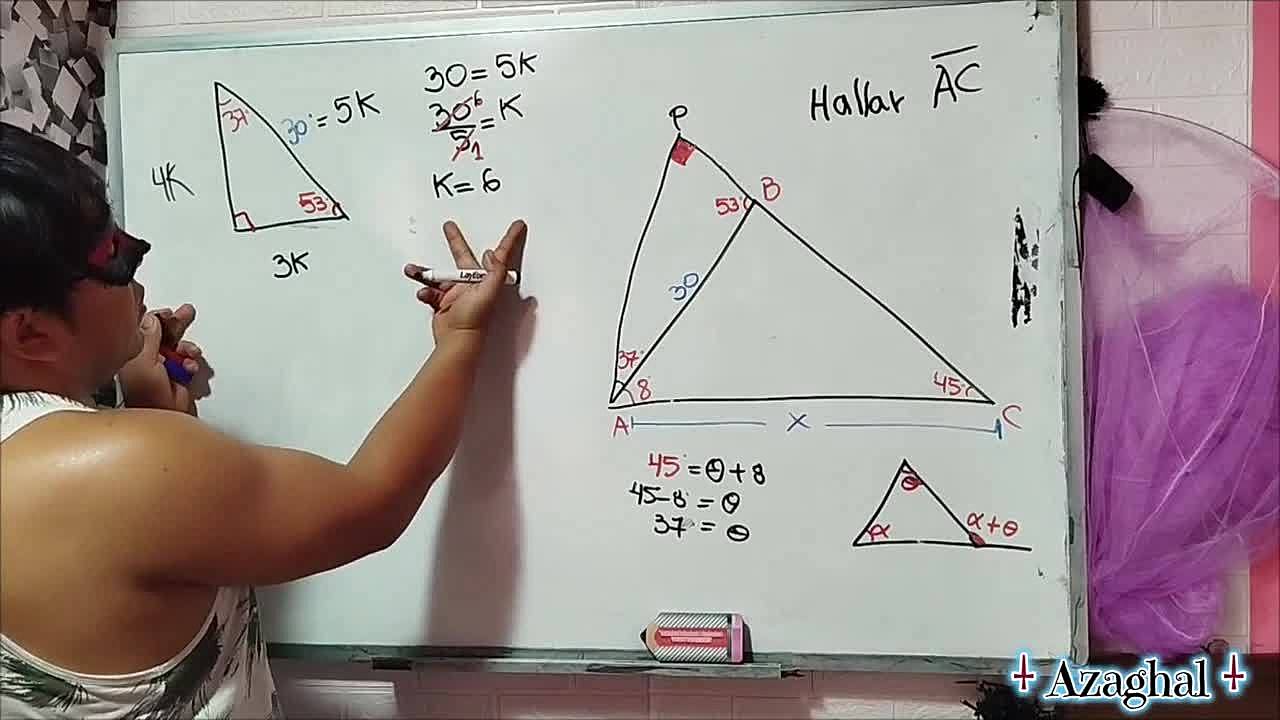 37°
30° = 5K
4K
53°
3K
30 = 5K
30 6 = K
5 1
K = 6
Hallar AC
P
B
53°
30
37°
8
45°
A
C
x
45° = θ + 8
45 - 8° = θ
37° = θ
θ
α
α + θ
Azaghal